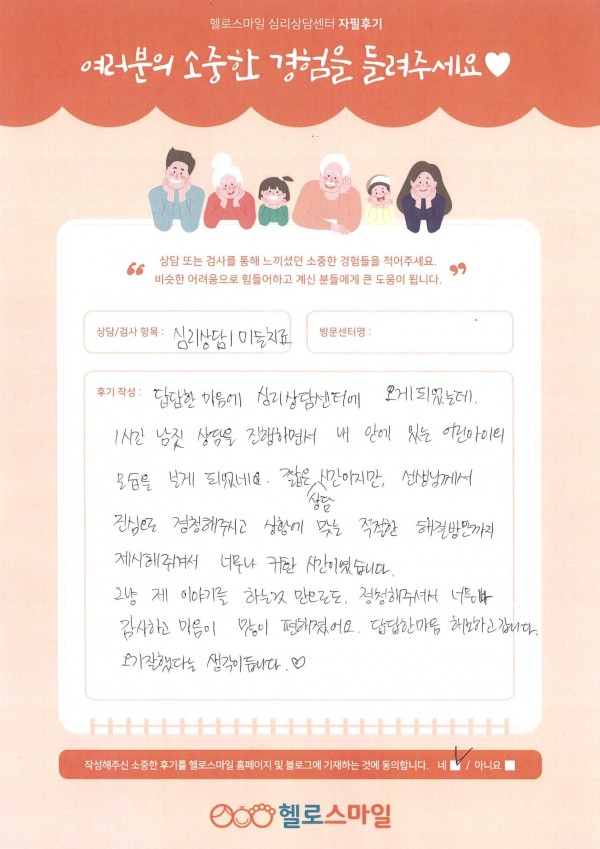 헬로스마일 심리상담센터 자필후기
여러분의 소중한 경험을 들려주세요♥
“ 상담 또는 검사를 통해 느끼셨던 소중한 경험들을 적어주세요.
비슷한 어려움으로 힘들어하고 계신 분들에게 큰 도움이 됩니다. ”
상담/검사 항목 : 심리상담 / 미술치료
방문센터명 :
후기 작성 : 답답한 마음에 심리상담센터에 오게 되었는데,
1시간 남짓 상담을 진행하면서 내 안에 있는 어린아이의
모습을 보게 되었네요. 짧은 상담 시간이지만, 선생님께서
진심으로 경청해주시고 상황에 맞는 적절한 해결방안까지
제시해주셔서 너무나 귀한 시간이었습니다.
그냥 제 이야기를 하는것 만으로도, 경청해주셔서 너무나
감사하고 마음이 많이 편해졌어요. 답답한마음 해소하고갑니다.
오기잘했다는 생각이듭니다. ♡
작성해주신 소중한 후기를 헬로스마일 홈페이지 및 블로그에 기재하는 것에 동의합니다. 네 ✓ / 아니요
헬로스마일